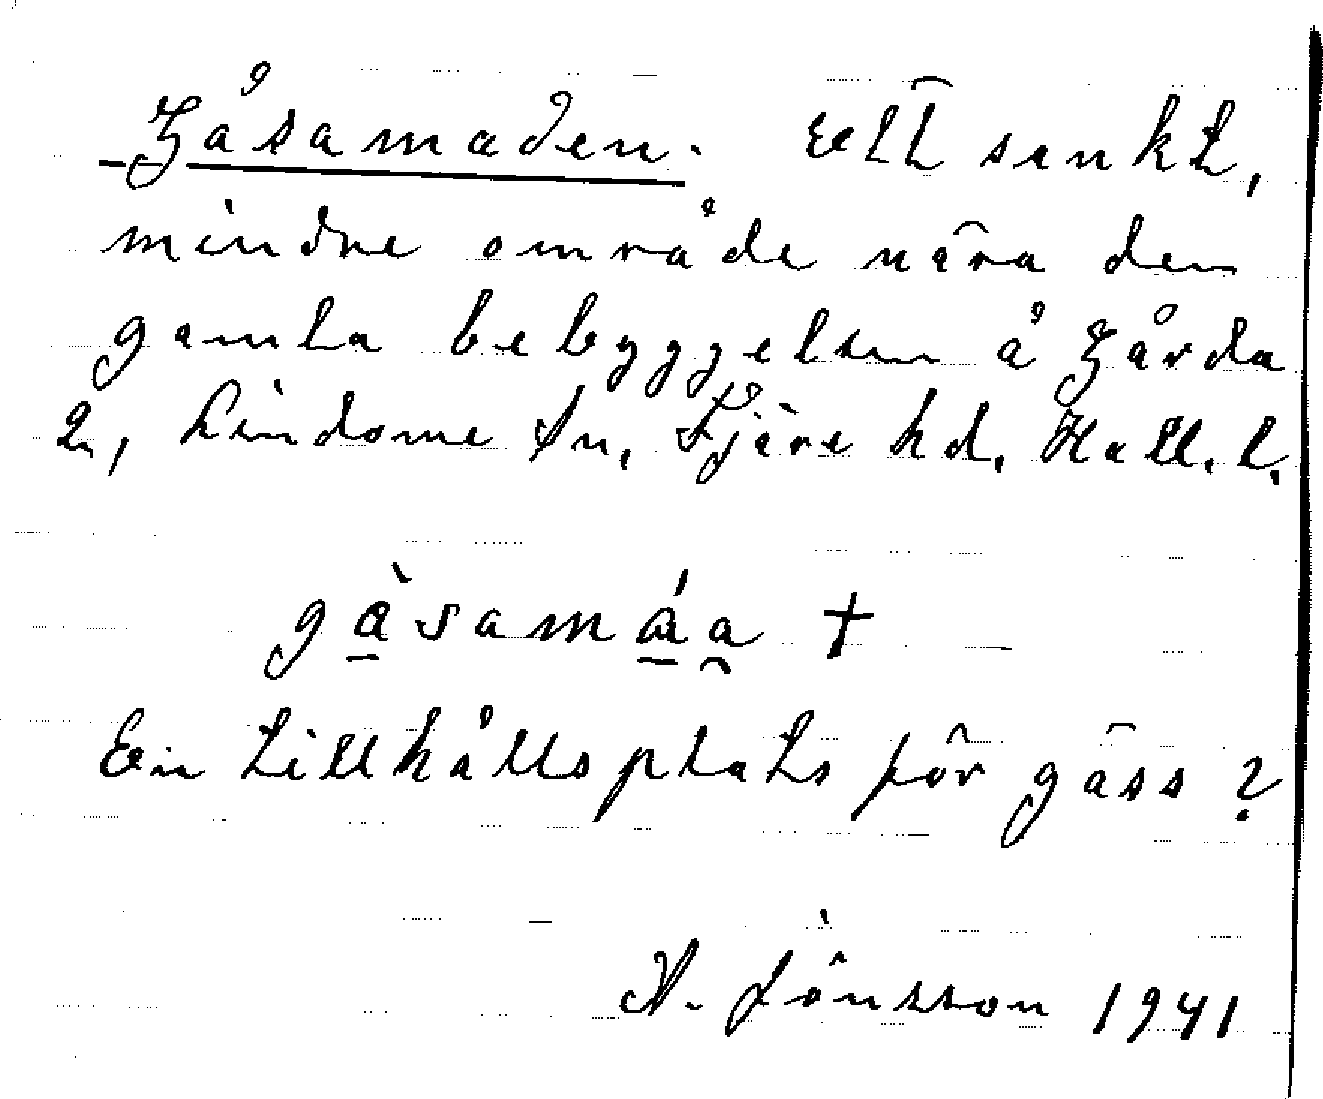 Gåsamaden. Ett sankt,
mindre område nära den
gamla bebyggelsen å Gårda
2, Lindome sn, Fjäre hd. Hall. l.
gåsamáa +
En tillhållsplats för gäss?
N. Jönsson 1941